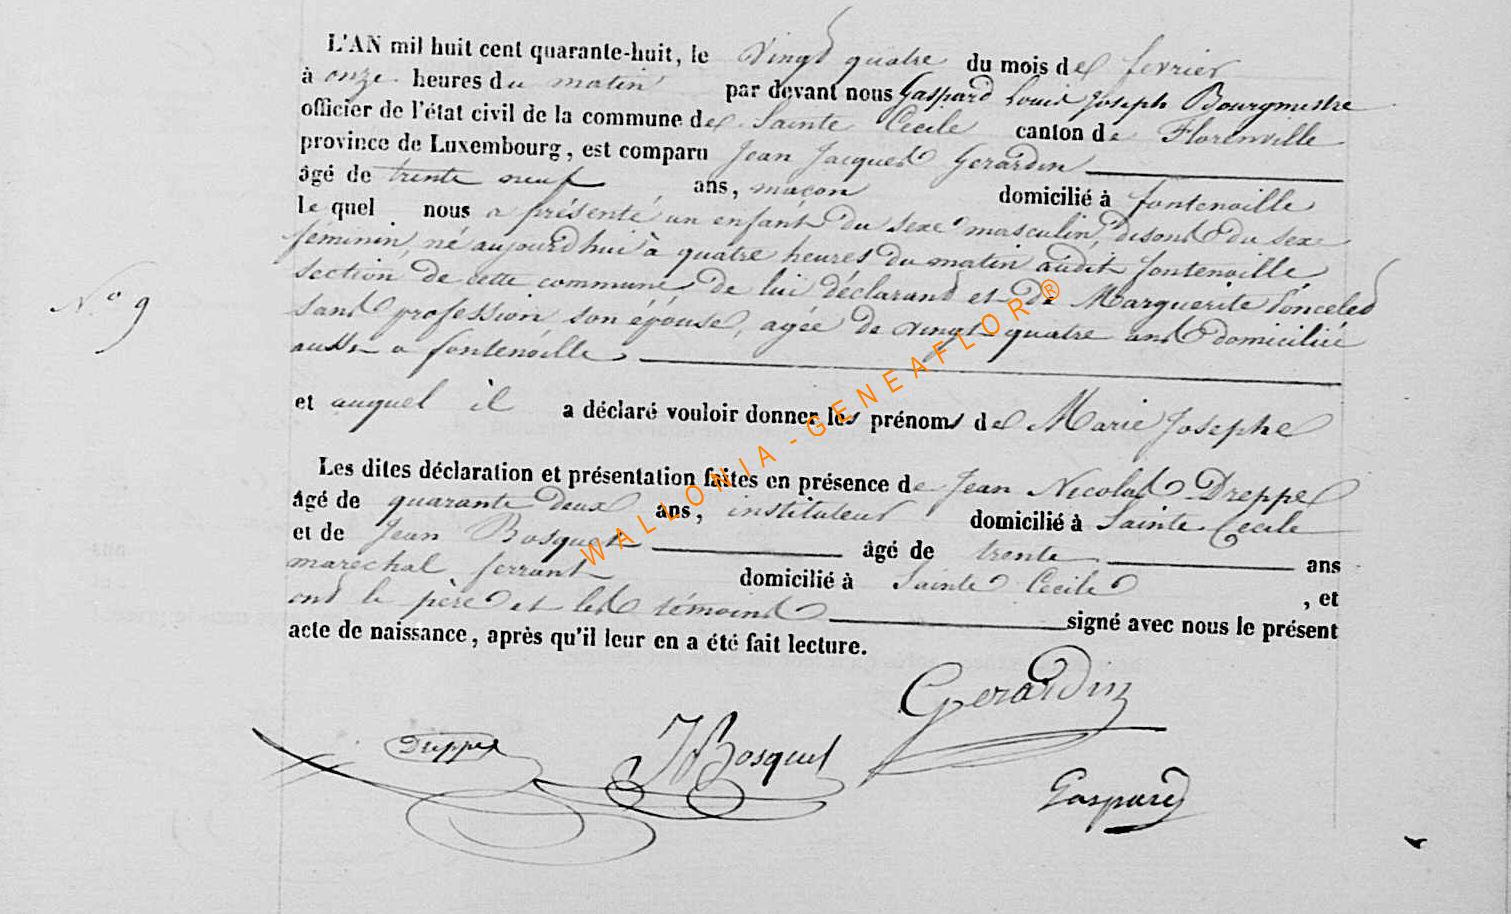 L'AN mil huit cent quarante-huit, le vingt quatre du mois de fevrier
à onze heures du matin par devant nous Gaspard Louis Joseph Bourgmestre
officier de l'état civil de la commune de Sainte Cecile canton de Florenville
province de Luxembourg, est comparu Jean Jacques Gerardin
âgé de trente neuf ans, maçon domicilié à fontenoille
le quel nous a présenté un enfant du sexe masculin, disons du sexe
feminin, né aujourdhui à quatre heures du matin audit fontenoille
section de cette commune de lui déclarant et de Marguerite Poncelet
sans profession son épouse, agée de vingt quatre ans domiciliée
aussi a fontenoille
N° 9
et auquel il a déclaré vouloir donner les prénoms de Marie Josephe
Les dites déclaration et présentation faites en présence de Jean Nicolas Dreppe
âgé de quarante deux ans, instituteur domicilié à Sainte Cecile
et de Jean Bosquet âgé de trente ans
marechal ferrant domicilié à Sainte Cecile, et
ont le père et les témoins signé avec nous le présent
acte de naissance, après qu'il leur en a été fait lecture.
Gerardin
Dreppe JBosquet
Gaspard
WALLONIA - GENEAFLOR ®